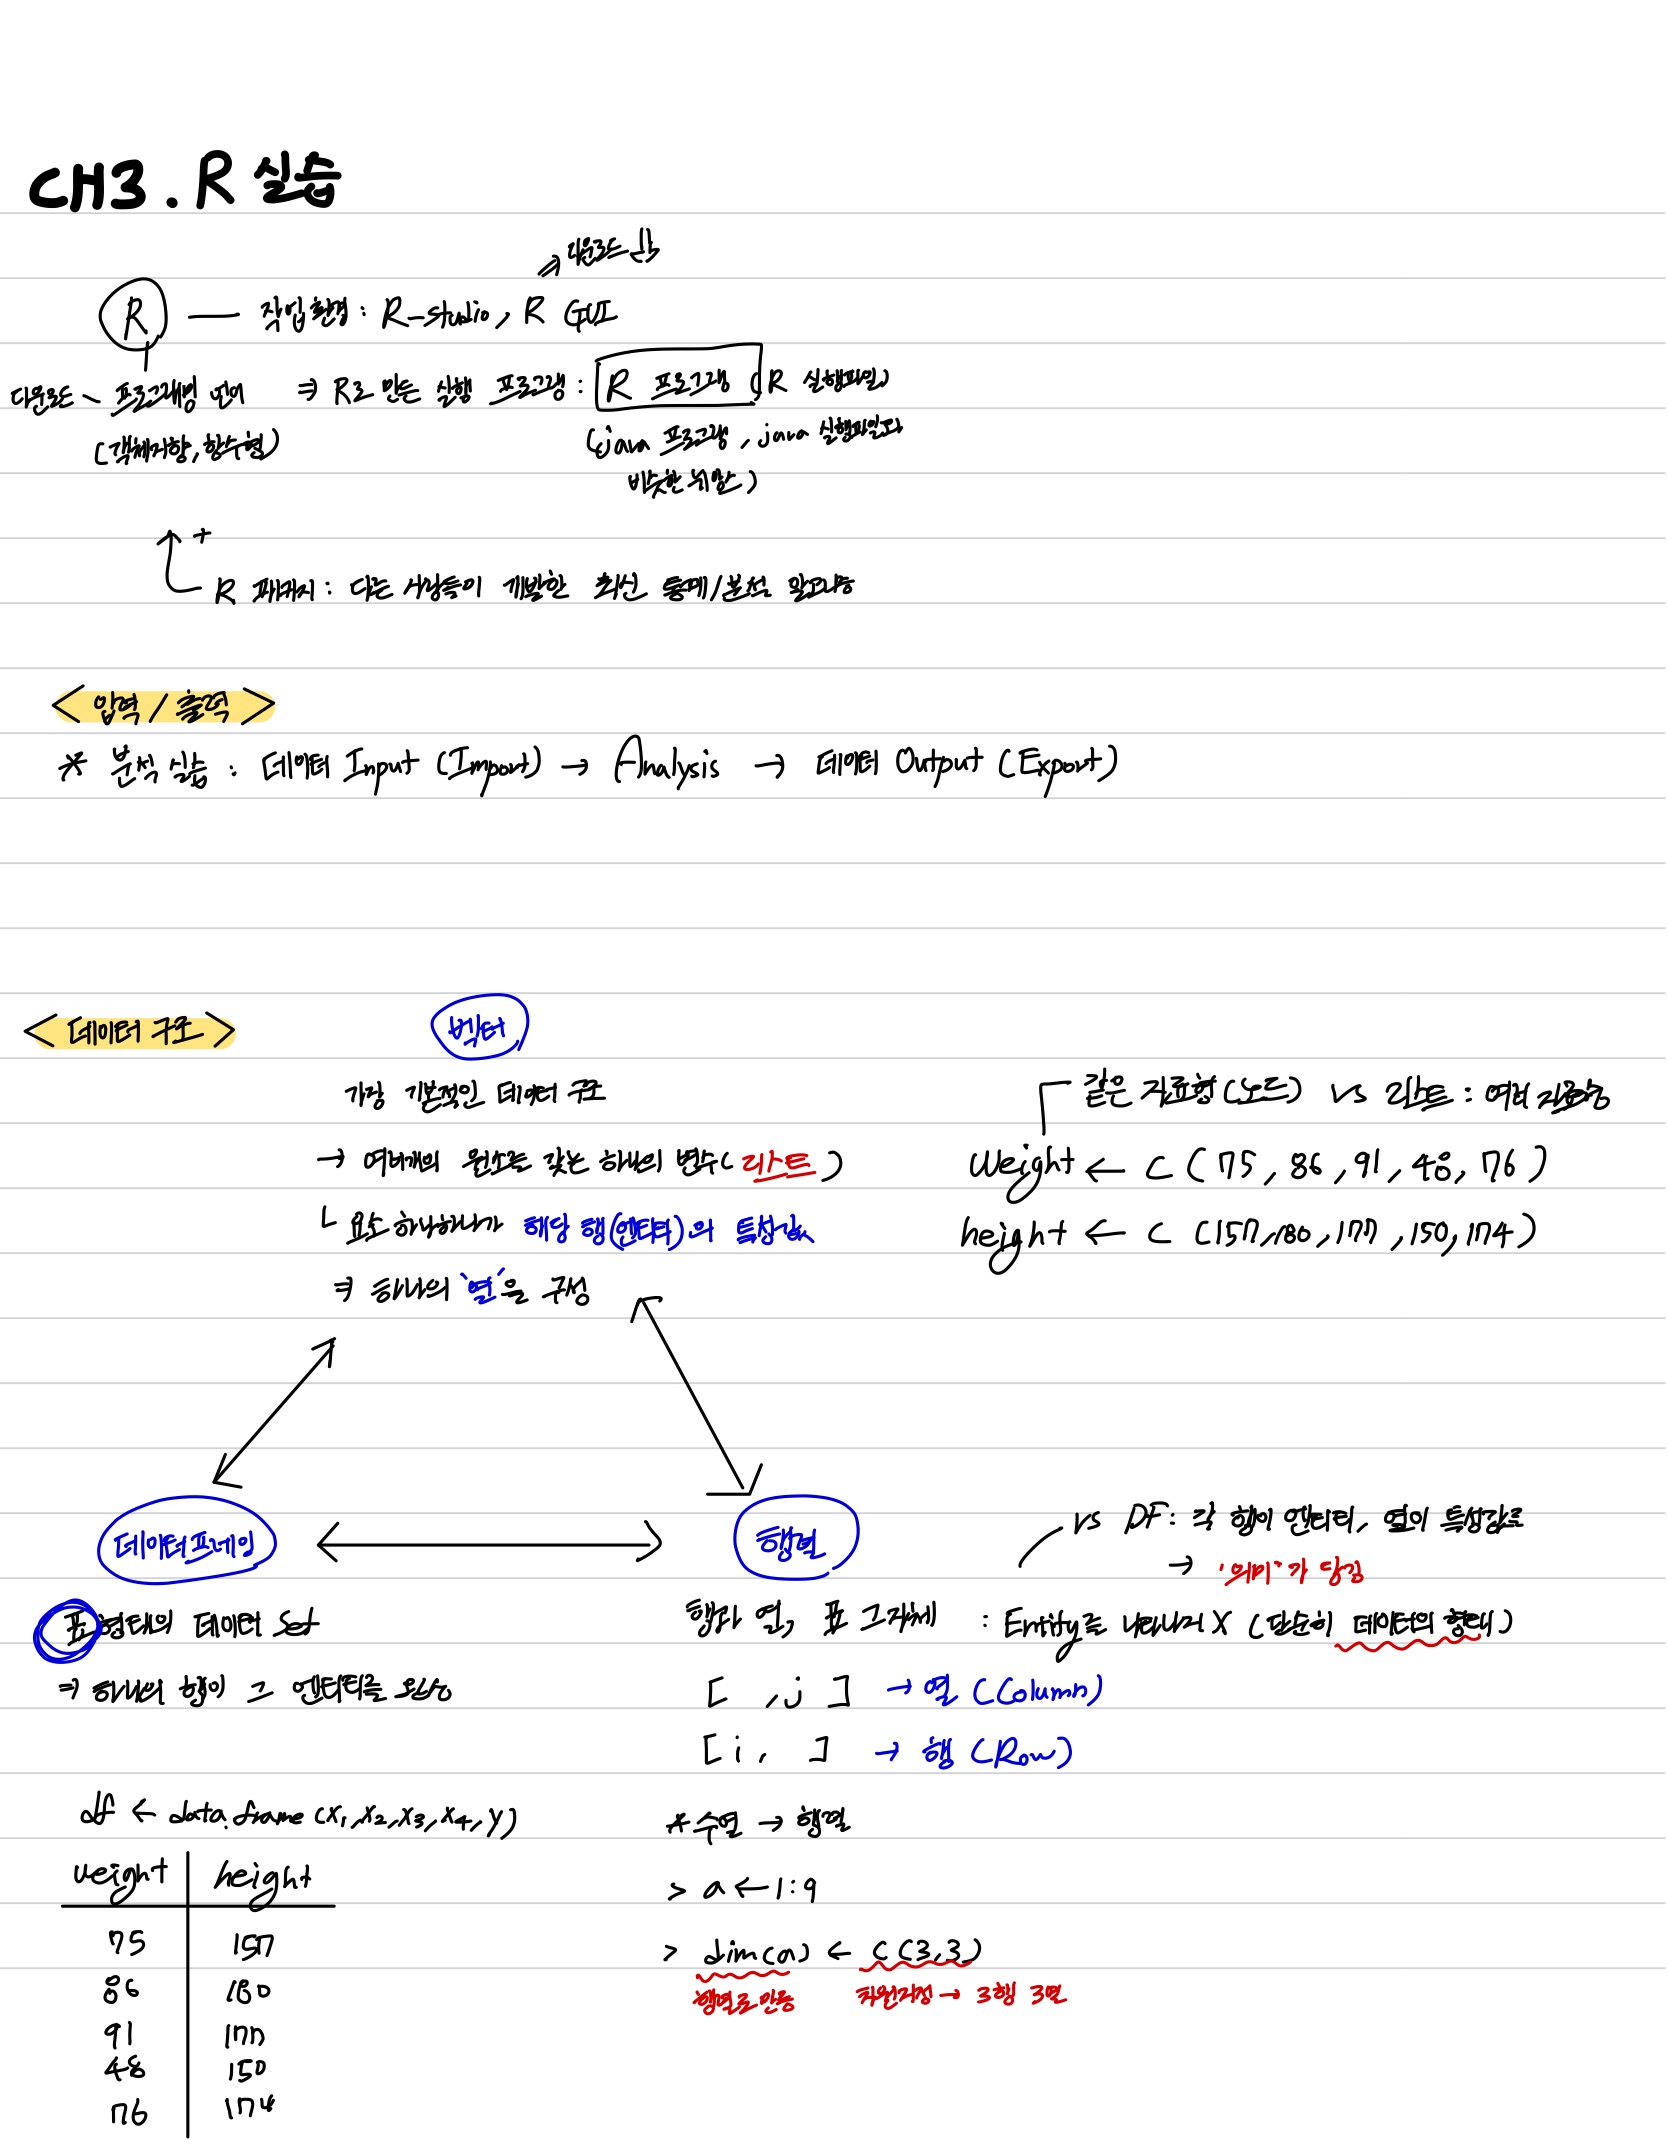 CH3. R 실습
⇒ 다운로드
R — 작업환경 : R-studio, R GUI
다운로드 ~ 프로그래밍 언어 ⇒ R로 만든 실행 프로그램 : R 프로그램 (R 실행파일)
(객체지향, 함수형) (java 프로그램, java 실행파일과
비슷한 뉘앙스)
+
R 패키지 : 다른 사람들이 개발한 최신 통계/분석 알고리즘
<입력 / 출력>
* 분석 실습 : 데이터 Input (Import) → Analysis → 데이터 Output (Export)
<데이터 구조> 벡터
가장 기본적인 데이터 구조
→ 여러개의 원소를 갖는 하나의 변수(리스트)
└ 요소 하나하나가 해당 행(엔티티)의 특성값
⇒ 하나의 '열'을 구성
같은 자료형(노드) vs 리스트 : 여러 자료형
Weight ← c (75, 86, 91, 48, 76)
height ← c (157, 180, 177, 150, 174)
데이터프레임
표 형태의 데이터 Set
⇒ 하나의 행이 그 엔티티를 완성
df ← data.frame (x1, x2, x3, x4, y)
weight height
75 157
86 180
91 177
48 150
76 174
행렬
vs DF : 각 행이 엔티티, 열이 특성값으로
→ '의미'가 담김
행과 열, 표 그 자체 : Entity를 나타내지 X (단순히 데이터의 형태)
[ ,j ] → 열 (Column)
[i, ] → 행 (Row)
* 수열 → 행렬
> a ← 1:9
> dim(a) ← c (3,3)
행렬로 만듦 차원지정 → 3행 3열